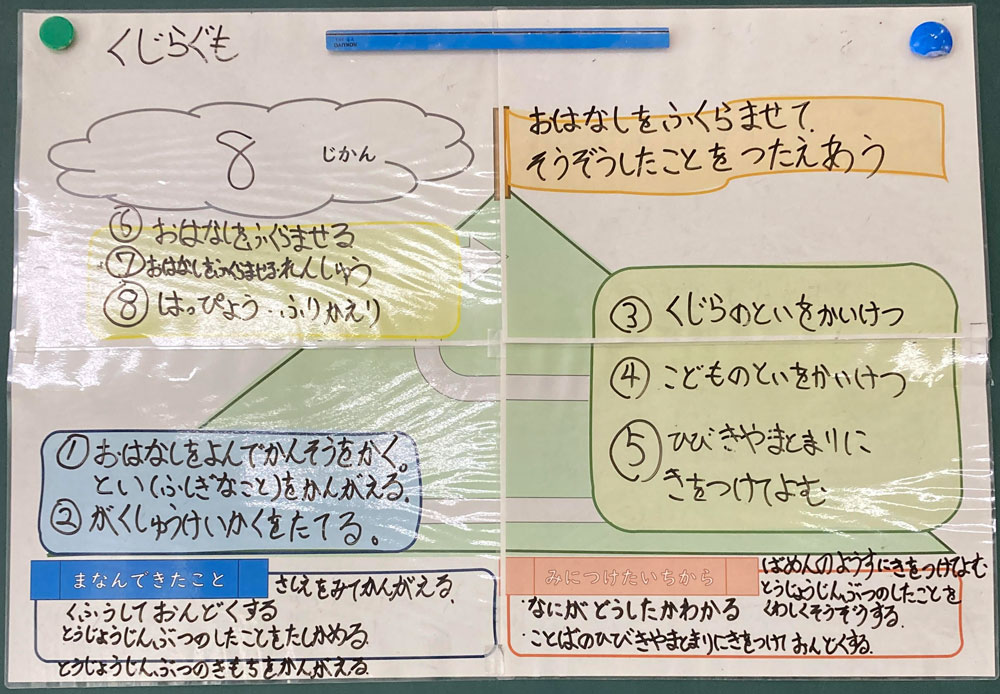 くじらぐも
8 じかん
おはなしをふくらませて、
そうぞうしたことをつたえあう
⑥ おはなしをふくらませる
⑦ おはなしをふくらませるれんしゅう
⑧ はっぴょう・ふりかえり
③ くじらのといをかいけつ
④ こどものといをかいけつ
⑤ ひびきやまとまりに
きをつけてよむ
① おはなしをよんでかんそうをかく。
とい(ふしぎなこと)をかんがえる。
② がくしゅうけいかくをたてる。
まなんできたこと
さしえをみてかんがえる。
くふうしておんどくする
とうじょうじんぶつのしたことをたしかめる
とうじょうじんぶつのきもちをかんがえる。
みにつけたいちから
ばめんのようすにきをつけてよむ
とうじょうじんぶつのしたことを
くわしくそうぞうする。
・なにがどうしたかわかる
・ことばのひびきやまとまりにきをつけておんどくする。